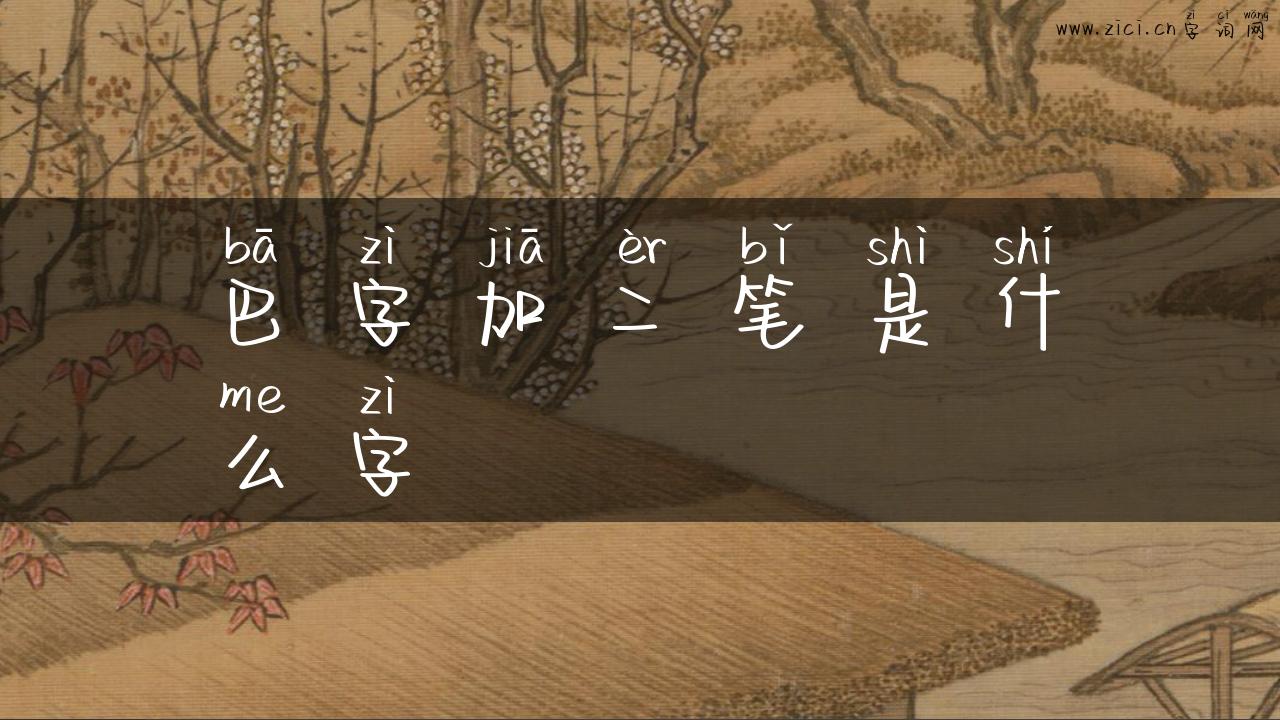 zì cí wǎng
www.zici.cn字词网
bā zì jiā èr bǐ shì shí
巴字加二笔是什
me zì
么字